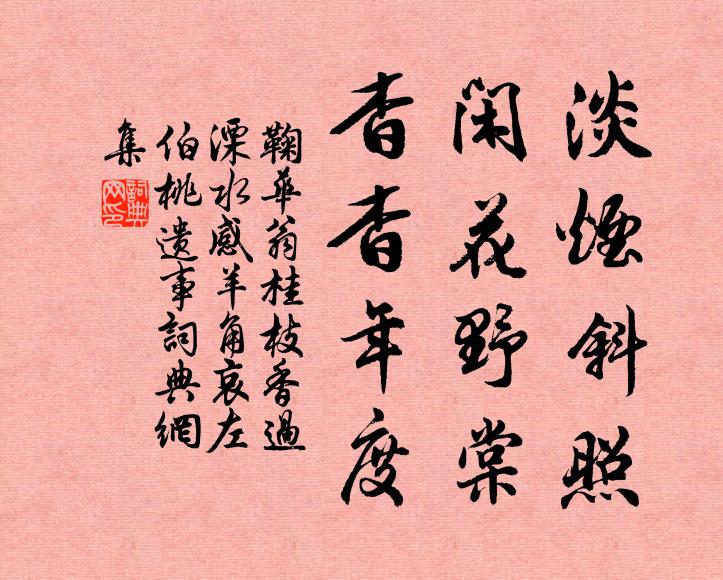 淡煙斜照
閑花野棠
杳杳年度
鞠華翁桂枝香過
溧水感羊角哀左
伯桃遺事詞典網
集
詞典
网印